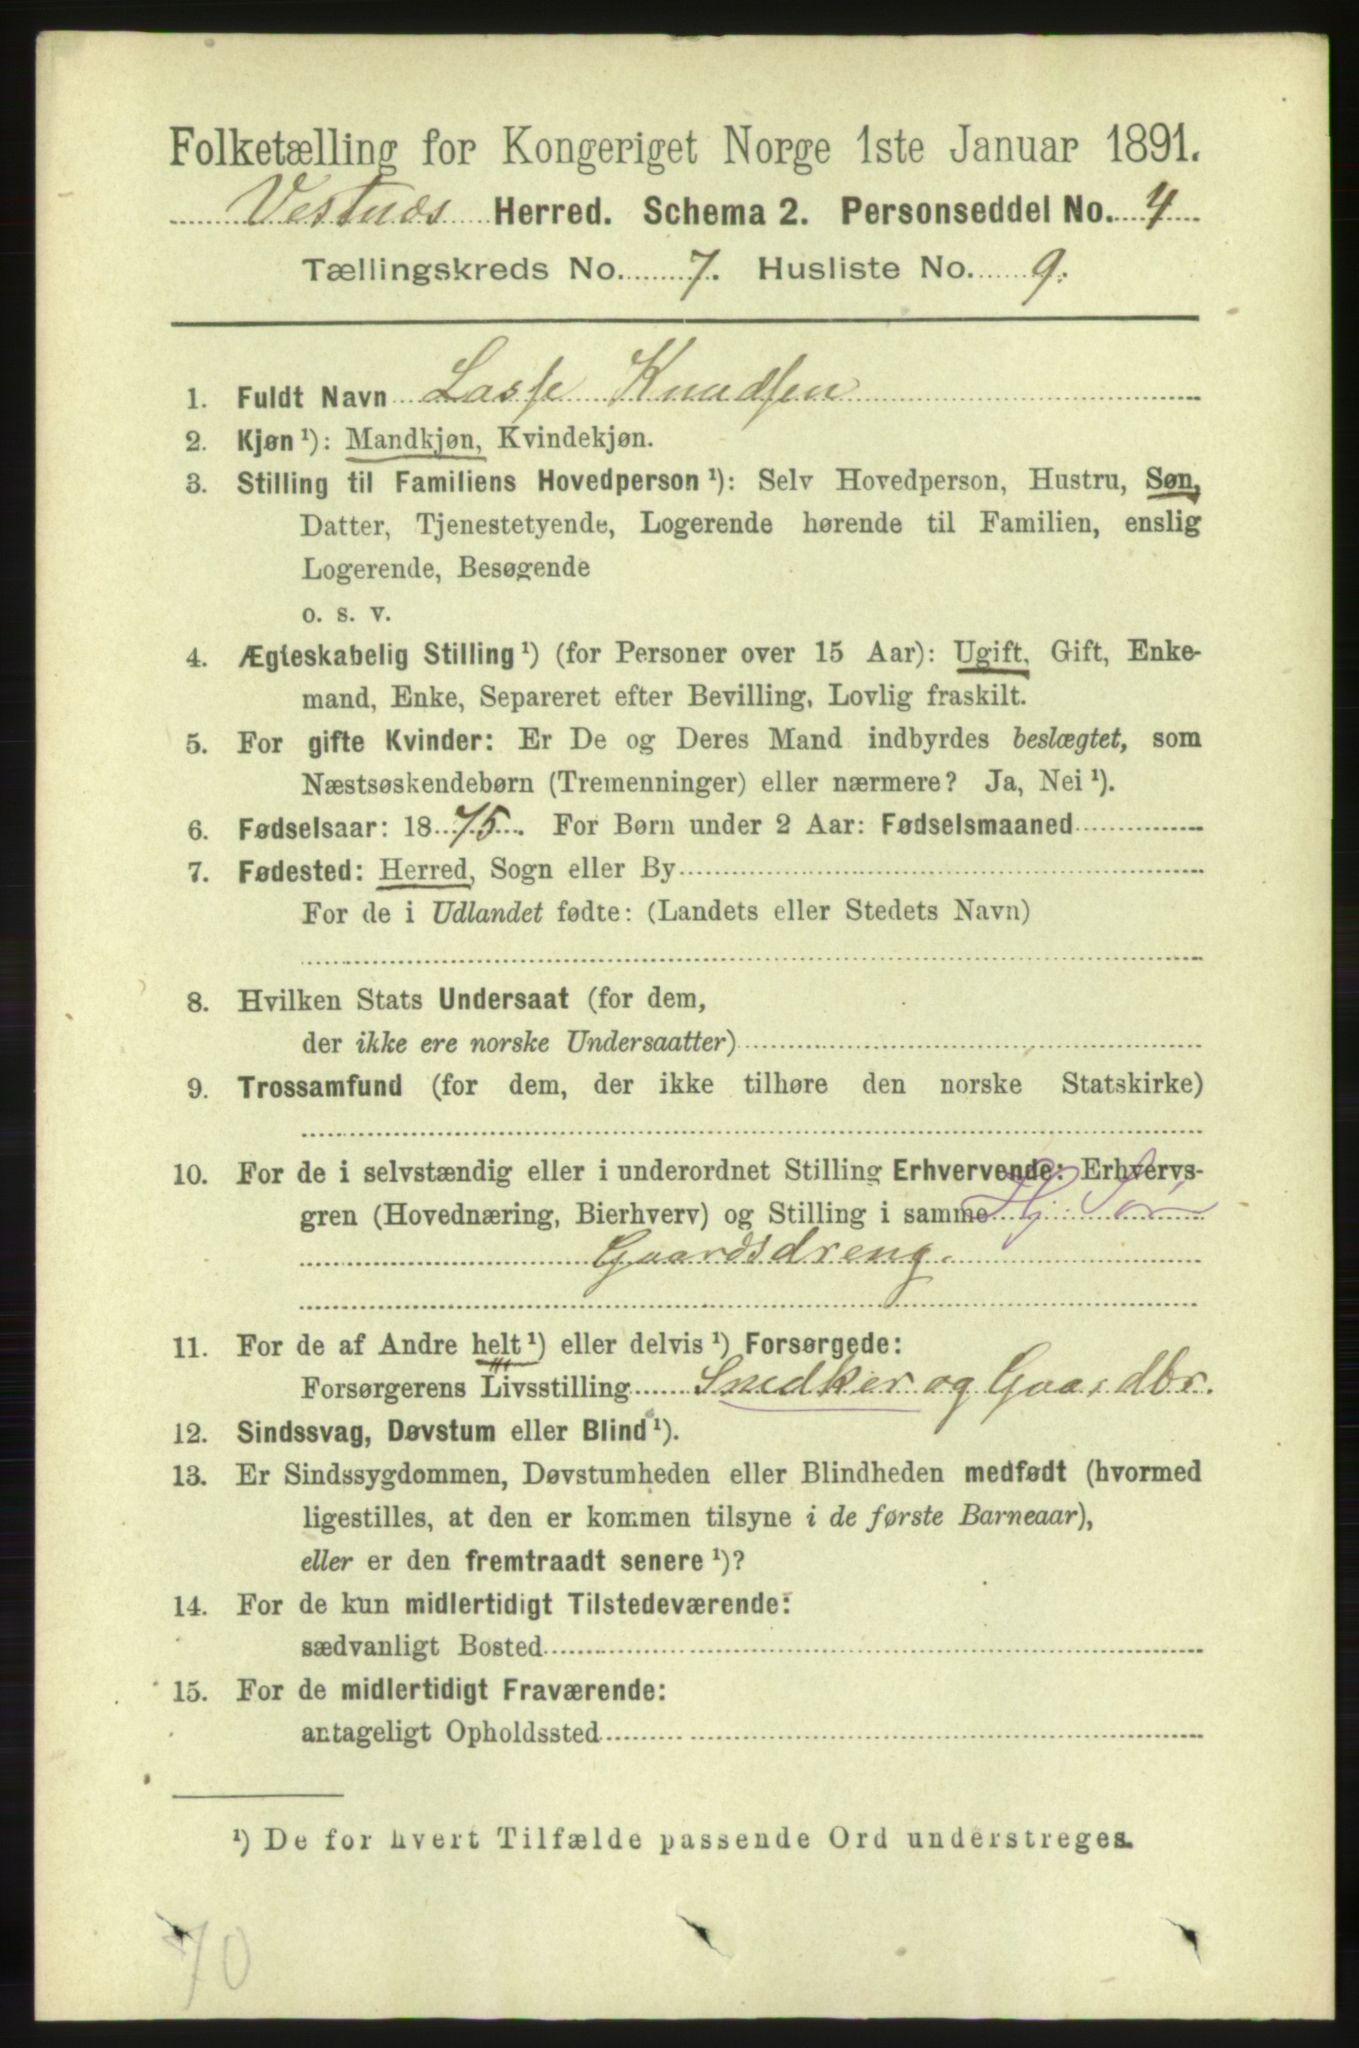 Folketælling for Kongeriget Norge 1ste Januar 1891.
Vestnæs Herred. Schema 2. Personseddel No. 4
Tællingskreds No. 7. Husliste No. 9.
1. Fuldt Navn Lasse Knudsen
2. Kjøn ¹): Mandkjøn, Kvindekjøn.
3. Stilling til Familiens Hovedperson ¹): Selv Hovedperson, Hustru, Søn,
Datter, Tjenestetyende, Logerende hørende til Familien, enslig
Logerende, Besøgende
o. s. v.
4. Ægteskabelig Stilling ¹) (for Personer over 15 Aar): Ugift, Gift, Enke-
mand, Enke, Separeret efter Bevilling, Lovlig fraskilt.
5. For gifte Kvinder: Er De og Deres Mand indbyrdes beslægtet, som
Næstsøskendebørn (Tremenninger) eller nærmere? Ja, Nei ¹).
6. Fødselsaar: 1875. For Børn under 2 Aar: Fødselsmaaned
7. Fødested: Herred, Sogn eller By
For de i Udlandet fødte: (Landets eller Stedets Navn)
8. Hvilken Stats Undersaat (for dem,
der ikke ere norske Undersaatter)
9. Trossamfund (for dem, der ikke tilhøre den norske Statskirke)
10. For de i selvstændig eller i underordnet Stilling Erhvervende: Erhvervs-
gren (Hovednæring, Bierhverv) og Stilling i samme
Gaardsdreng.
11. For de af Andre helt ¹) eller delvis ¹) Forsørgede:
Forsørgerens Livsstilling Snedker og Gaardbr.
12. Sindssvag, Døvstum eller Blind ¹).
13. Er Sindssygdommen, Døvstumheden eller Blindheden medfødt (hvormed
ligestilles, at den er kommen tilsyne i de første Barneaar),
eller er den fremtraadt senere ¹)?
14. For de kun midlertidigt Tilstedeværende:
sædvanligt Bosted
15. For de midlertidigt Fraværende:
antageligt Opholdssted
¹) De for hvert Tilfælde passende Ord understreges.
70